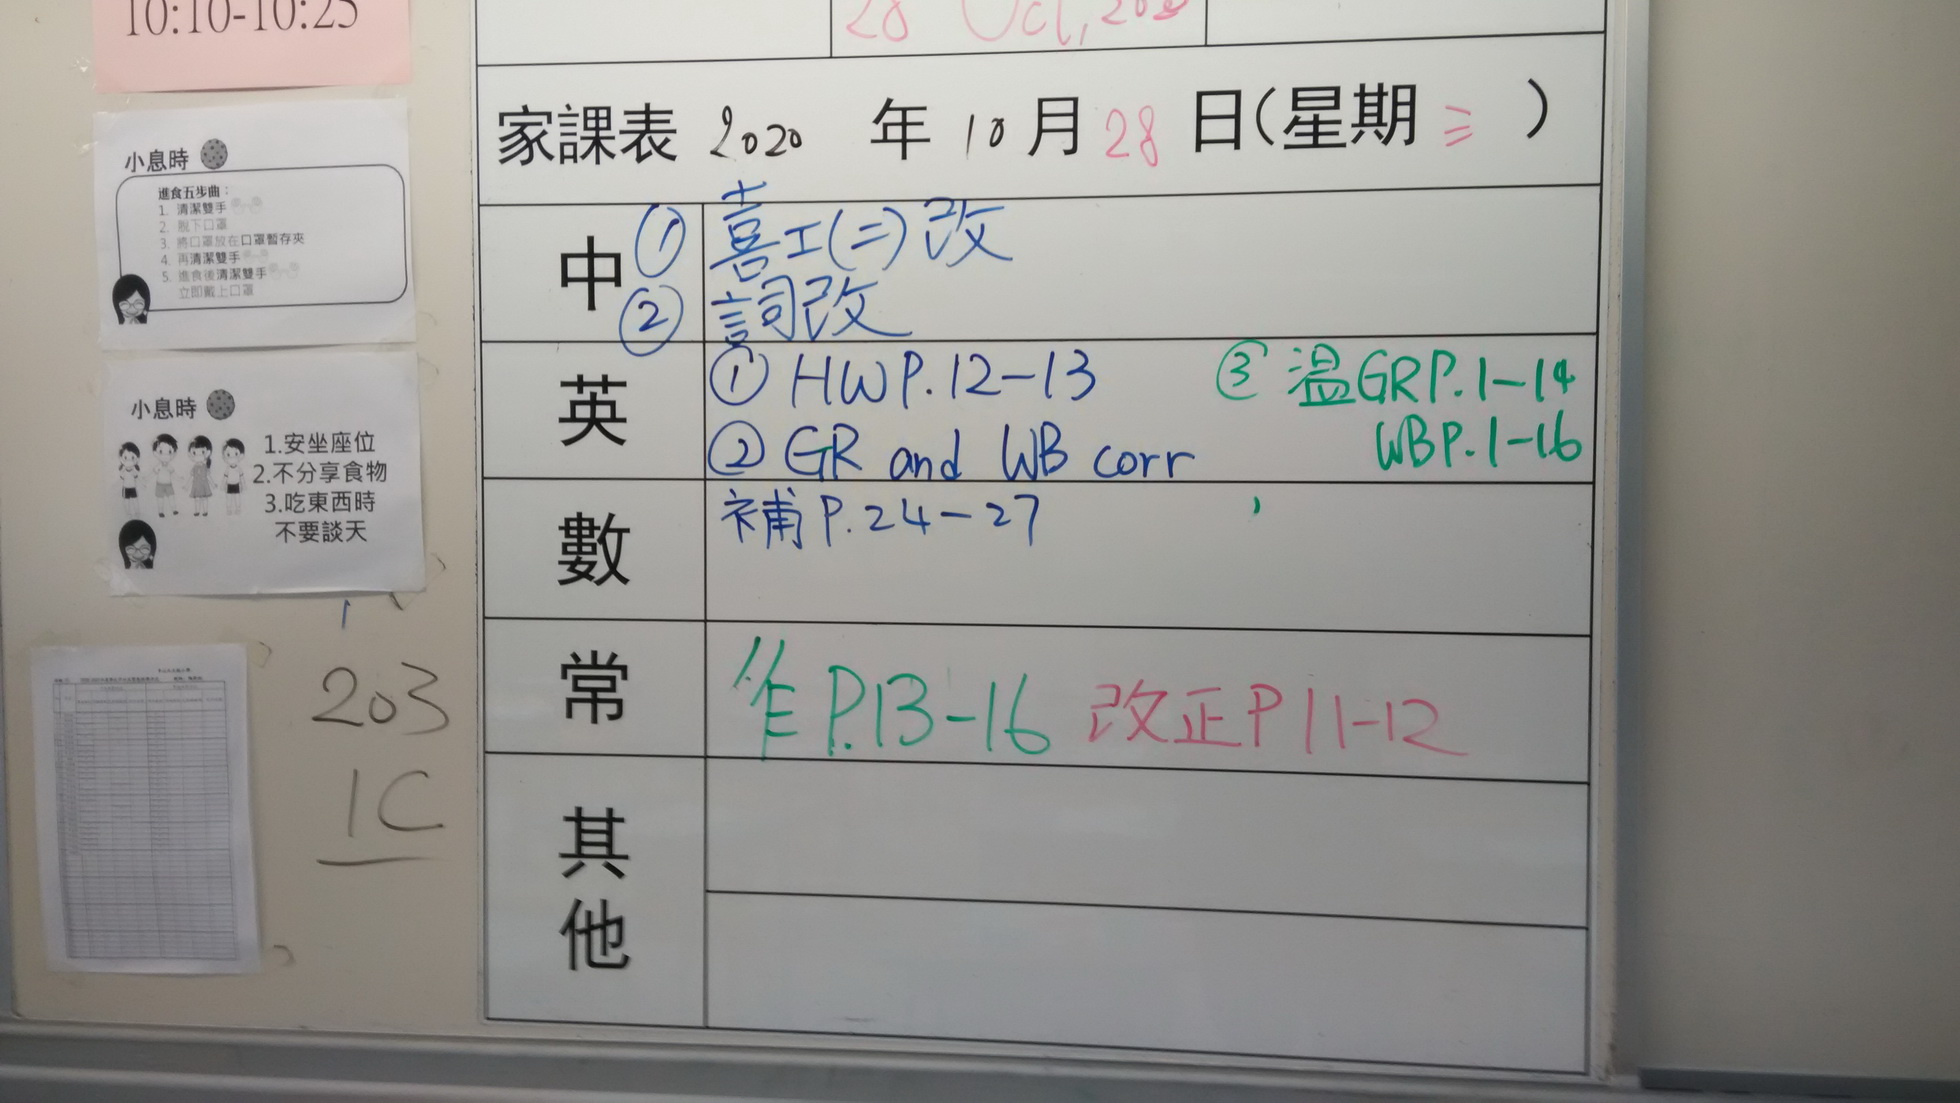 10:10-10:25
小息時
進食五步曲：
1. 清潔雙手
2. 脫下口罩
3. 將口罩放在口罩暫存夾
4. 再清潔雙手
5. 進食後清潔雙手
立即戴上口罩
小息時
1.安坐座位
2.不分享食物
3.吃東西時
不要談天
203
1C
28 Oct, 2020
家課表 2020 年 10 月 28 日(星期三)
中 ① 喜工(二)改
② 詞改
英 ① HW P.12-13 ③ 溫GR P.1-14
② GR and WB corr WB P.1-16
數 補 P.24-27
常 作 P.13-16 改正 P 11-12
其他